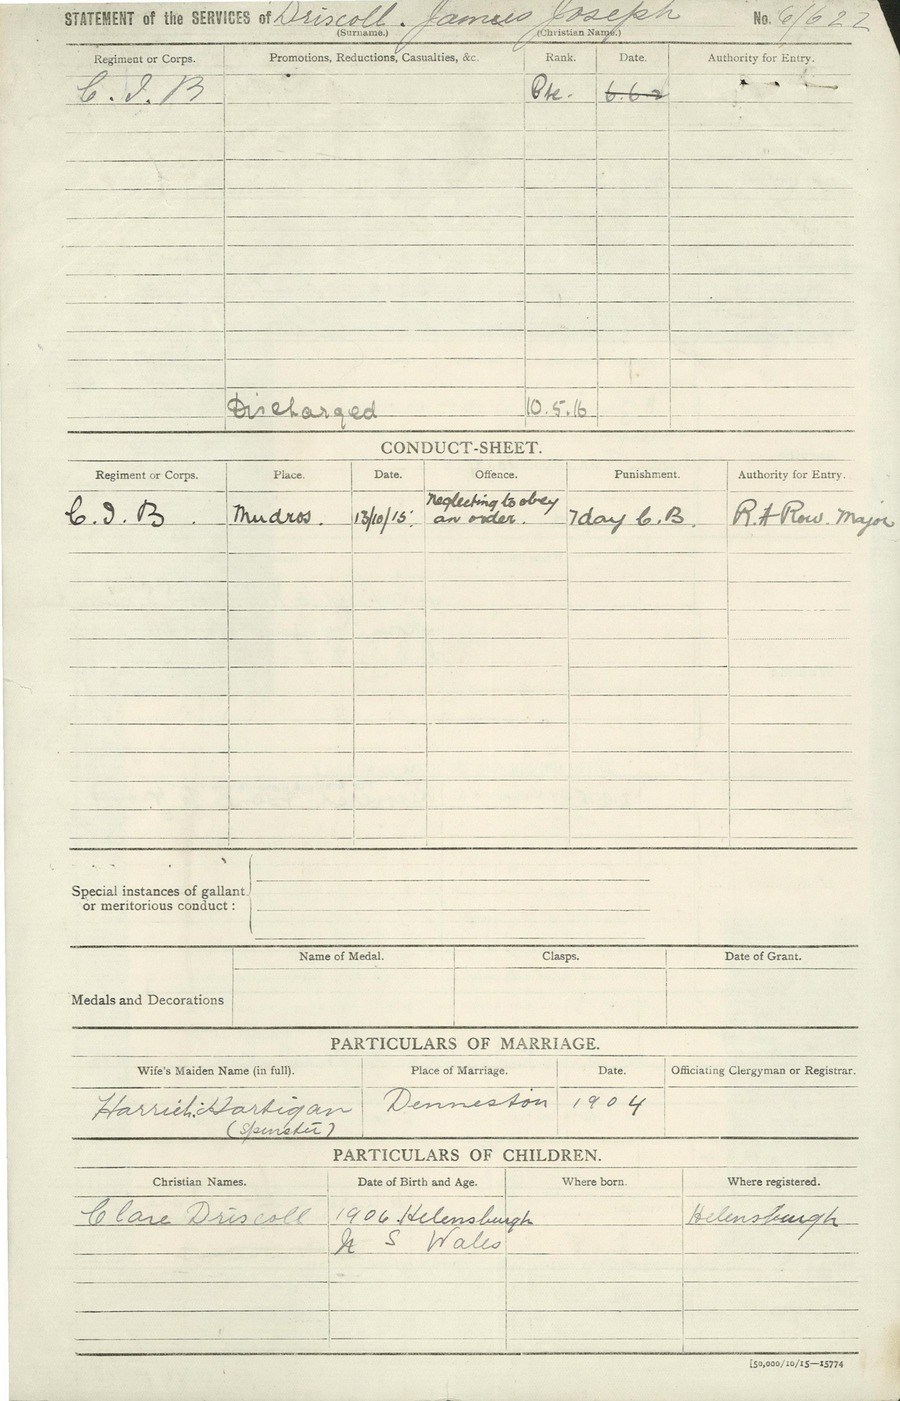 STATEMENT of the SERVICES of Driscoll. James Joseph No. 6/622
(Surname.) (Christian Name.)
Regiment or Corps. Promotions, Reductions, Casualties, &c. Rank. Date. Authority for Entry.
C. I. B Pte.
Discharged 10.5.16
CONDUCT-SHEET.
Regiment or Corps. Place. Date. Offence. Punishment. Authority for Entry.
C. I. B. Mudros. 13/10/15. Neglecting to obey an order. 7 day C.B. R. A Row. Major
Special instances of gallant
or meritorious conduct :
Name of Medal. Clasps. Date of Grant.
Medals and Decorations
PARTICULARS OF MARRIAGE.
Wife's Maiden Name (in full). Place of Marriage. Date. Officiating Clergyman or Registrar.
Hartigan Denneston 1904
(Spinster)
PARTICULARS OF CHILDREN.
Christian Names. Date of Birth and Age. Where born. Where registered.
Clare Driscoll 1906 Helensburgh Helensburgh
N S Wales
[50,000/10/15—15774